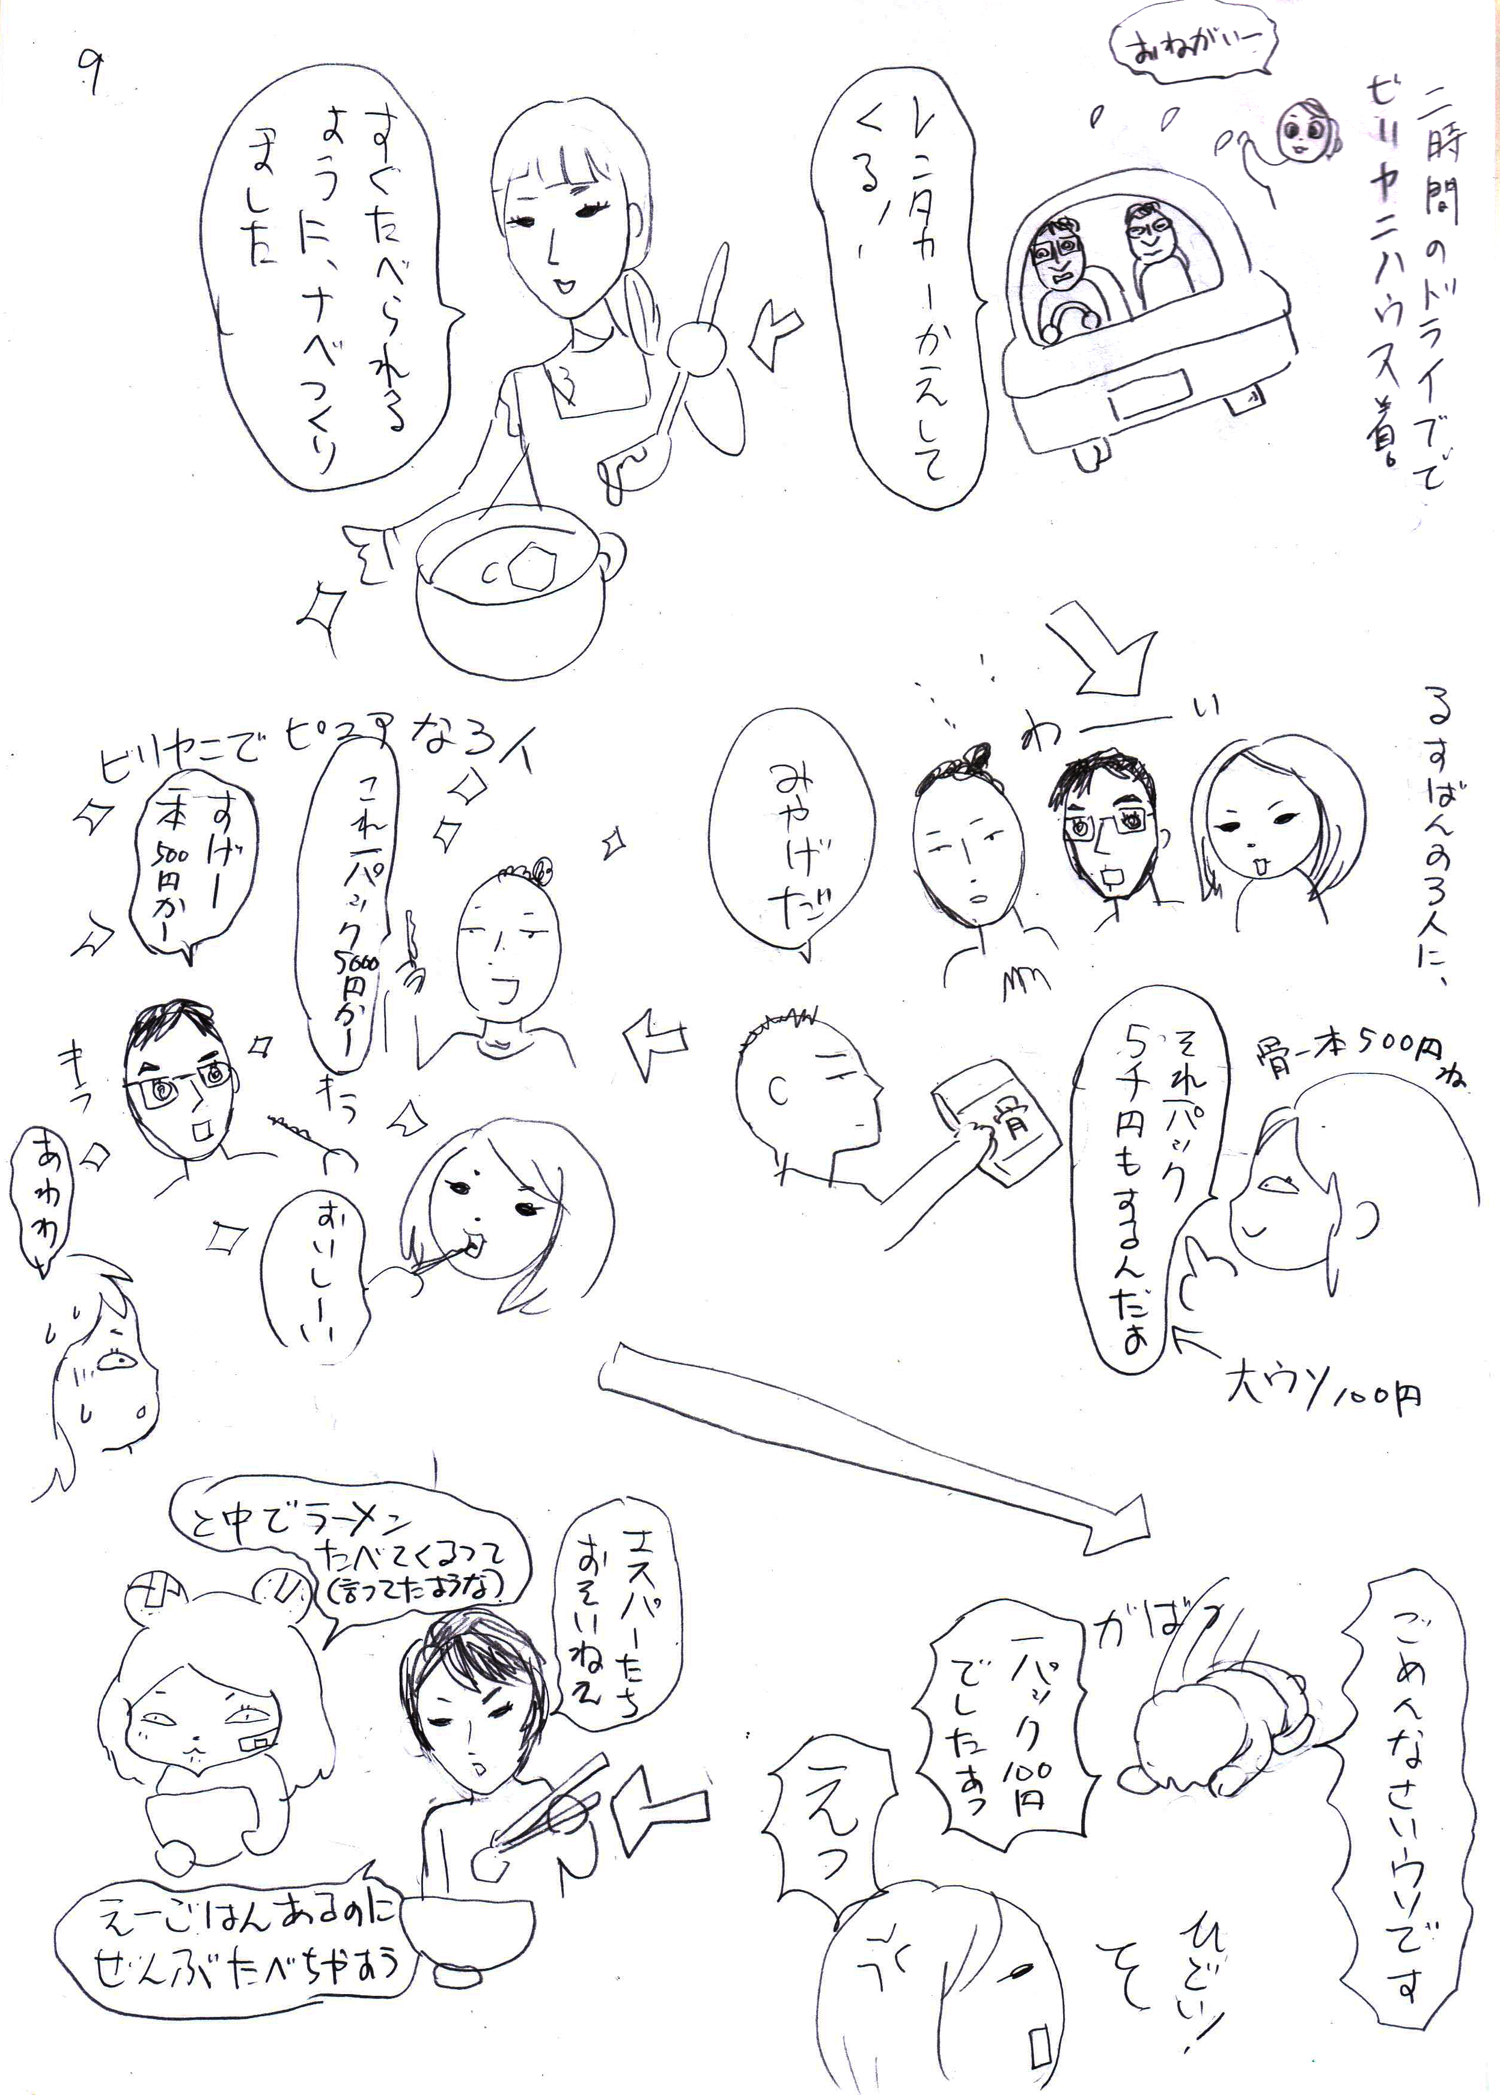 9
二時間のドライブで、
ビリヤニハウス着。
おねがいー
レンタカーかえして
くる!
すぐたべられる
ように、ナベつくり
ました
るすばんの3人に、
わーい
みやげだ
骨
骨一本500円ね
それ一パック
5千円もするんだよ
大ウソ100円
ビリヤニでピュアな3人
これ一パック5000円かー
すげー
一本500円かー
キラ
キラ
おいしーい
あわわ
ごめんなさいウソです
がばっ
一パック100円
でしたあっ
えっ
ひどい!
そ
エスパーたち
おそいねえ
と中でラーメン
たべてくるって
(言ってたような)
えーごはんあるのに
ぜんぶたべちゃおう